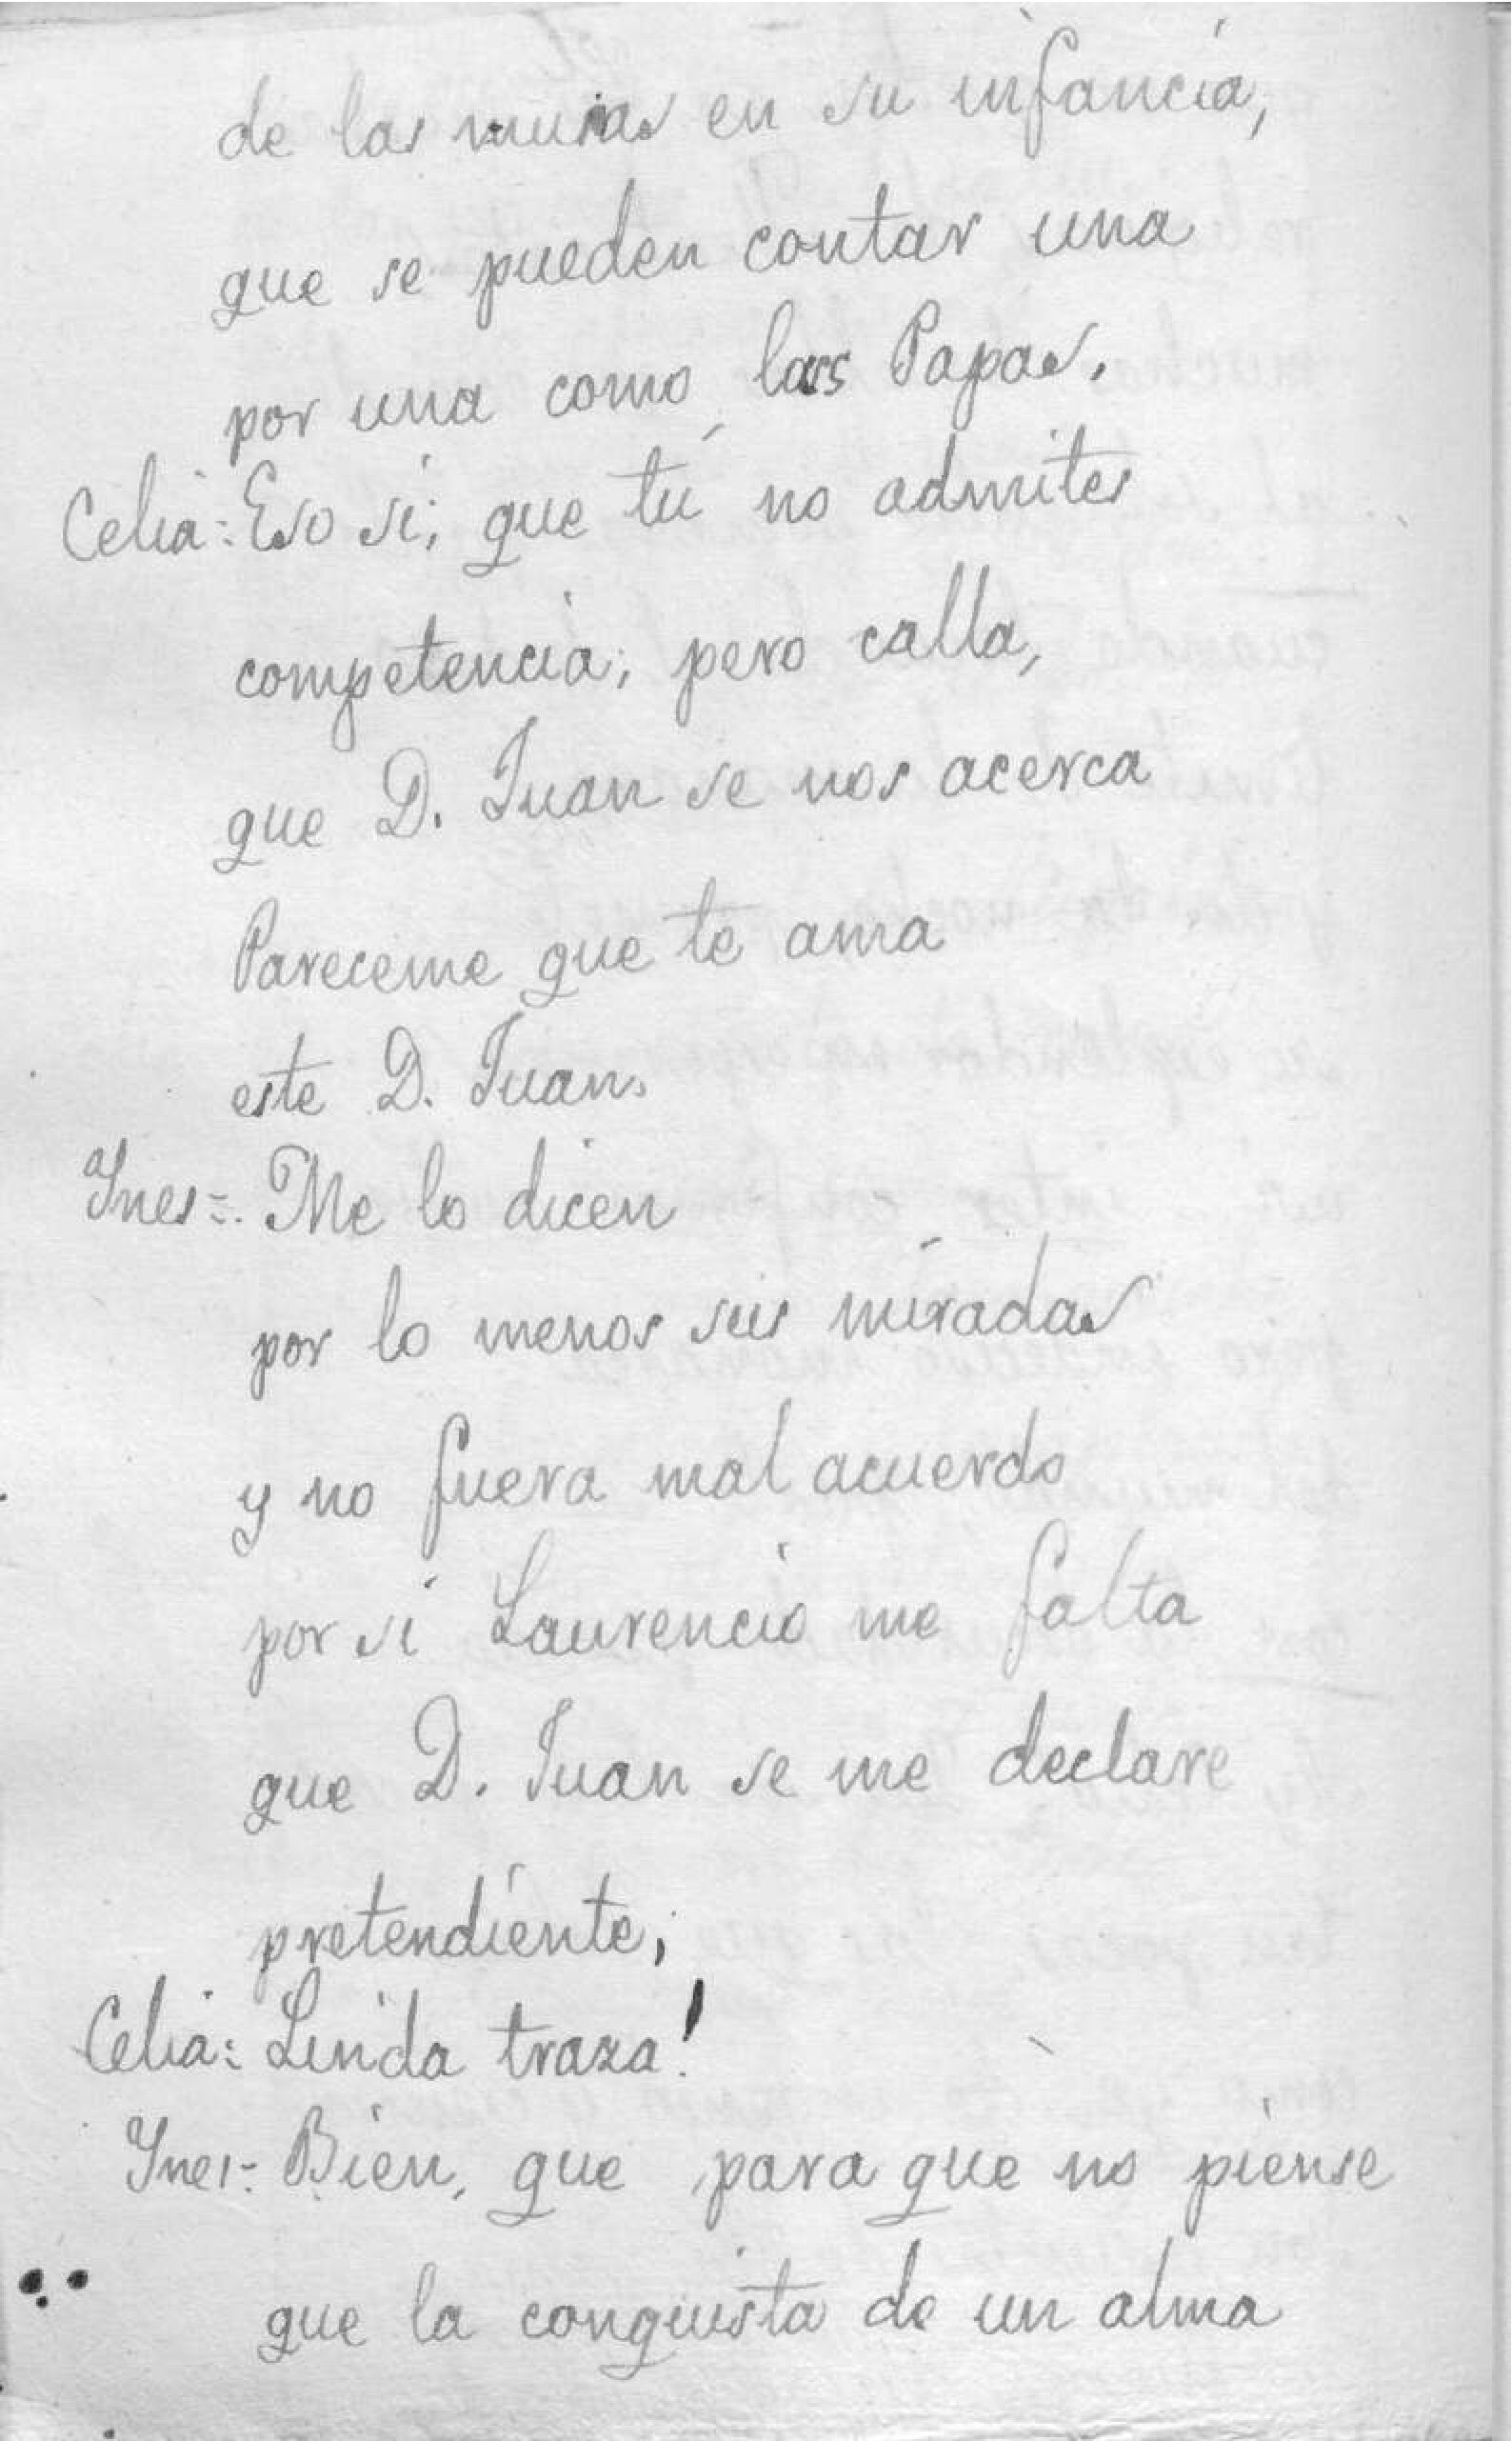 de las musas en su infancia,
que se pueden contar una
por una como las Papas.
Celia: Eso si; que tú no admites
competencia; pero calla,
que D. Juan se nos acerca
Pareceme que te ama
este D. Juan.
Ines=. Me lo dicen
por lo menos sus miradas
y no fuera mal acuerdo
por si Laurencio me falta
que D. Juan se me declare
pretendiente;
Celia: Linda traza!
Ines-. Bien, que para que no piense
que la conquista de un alma